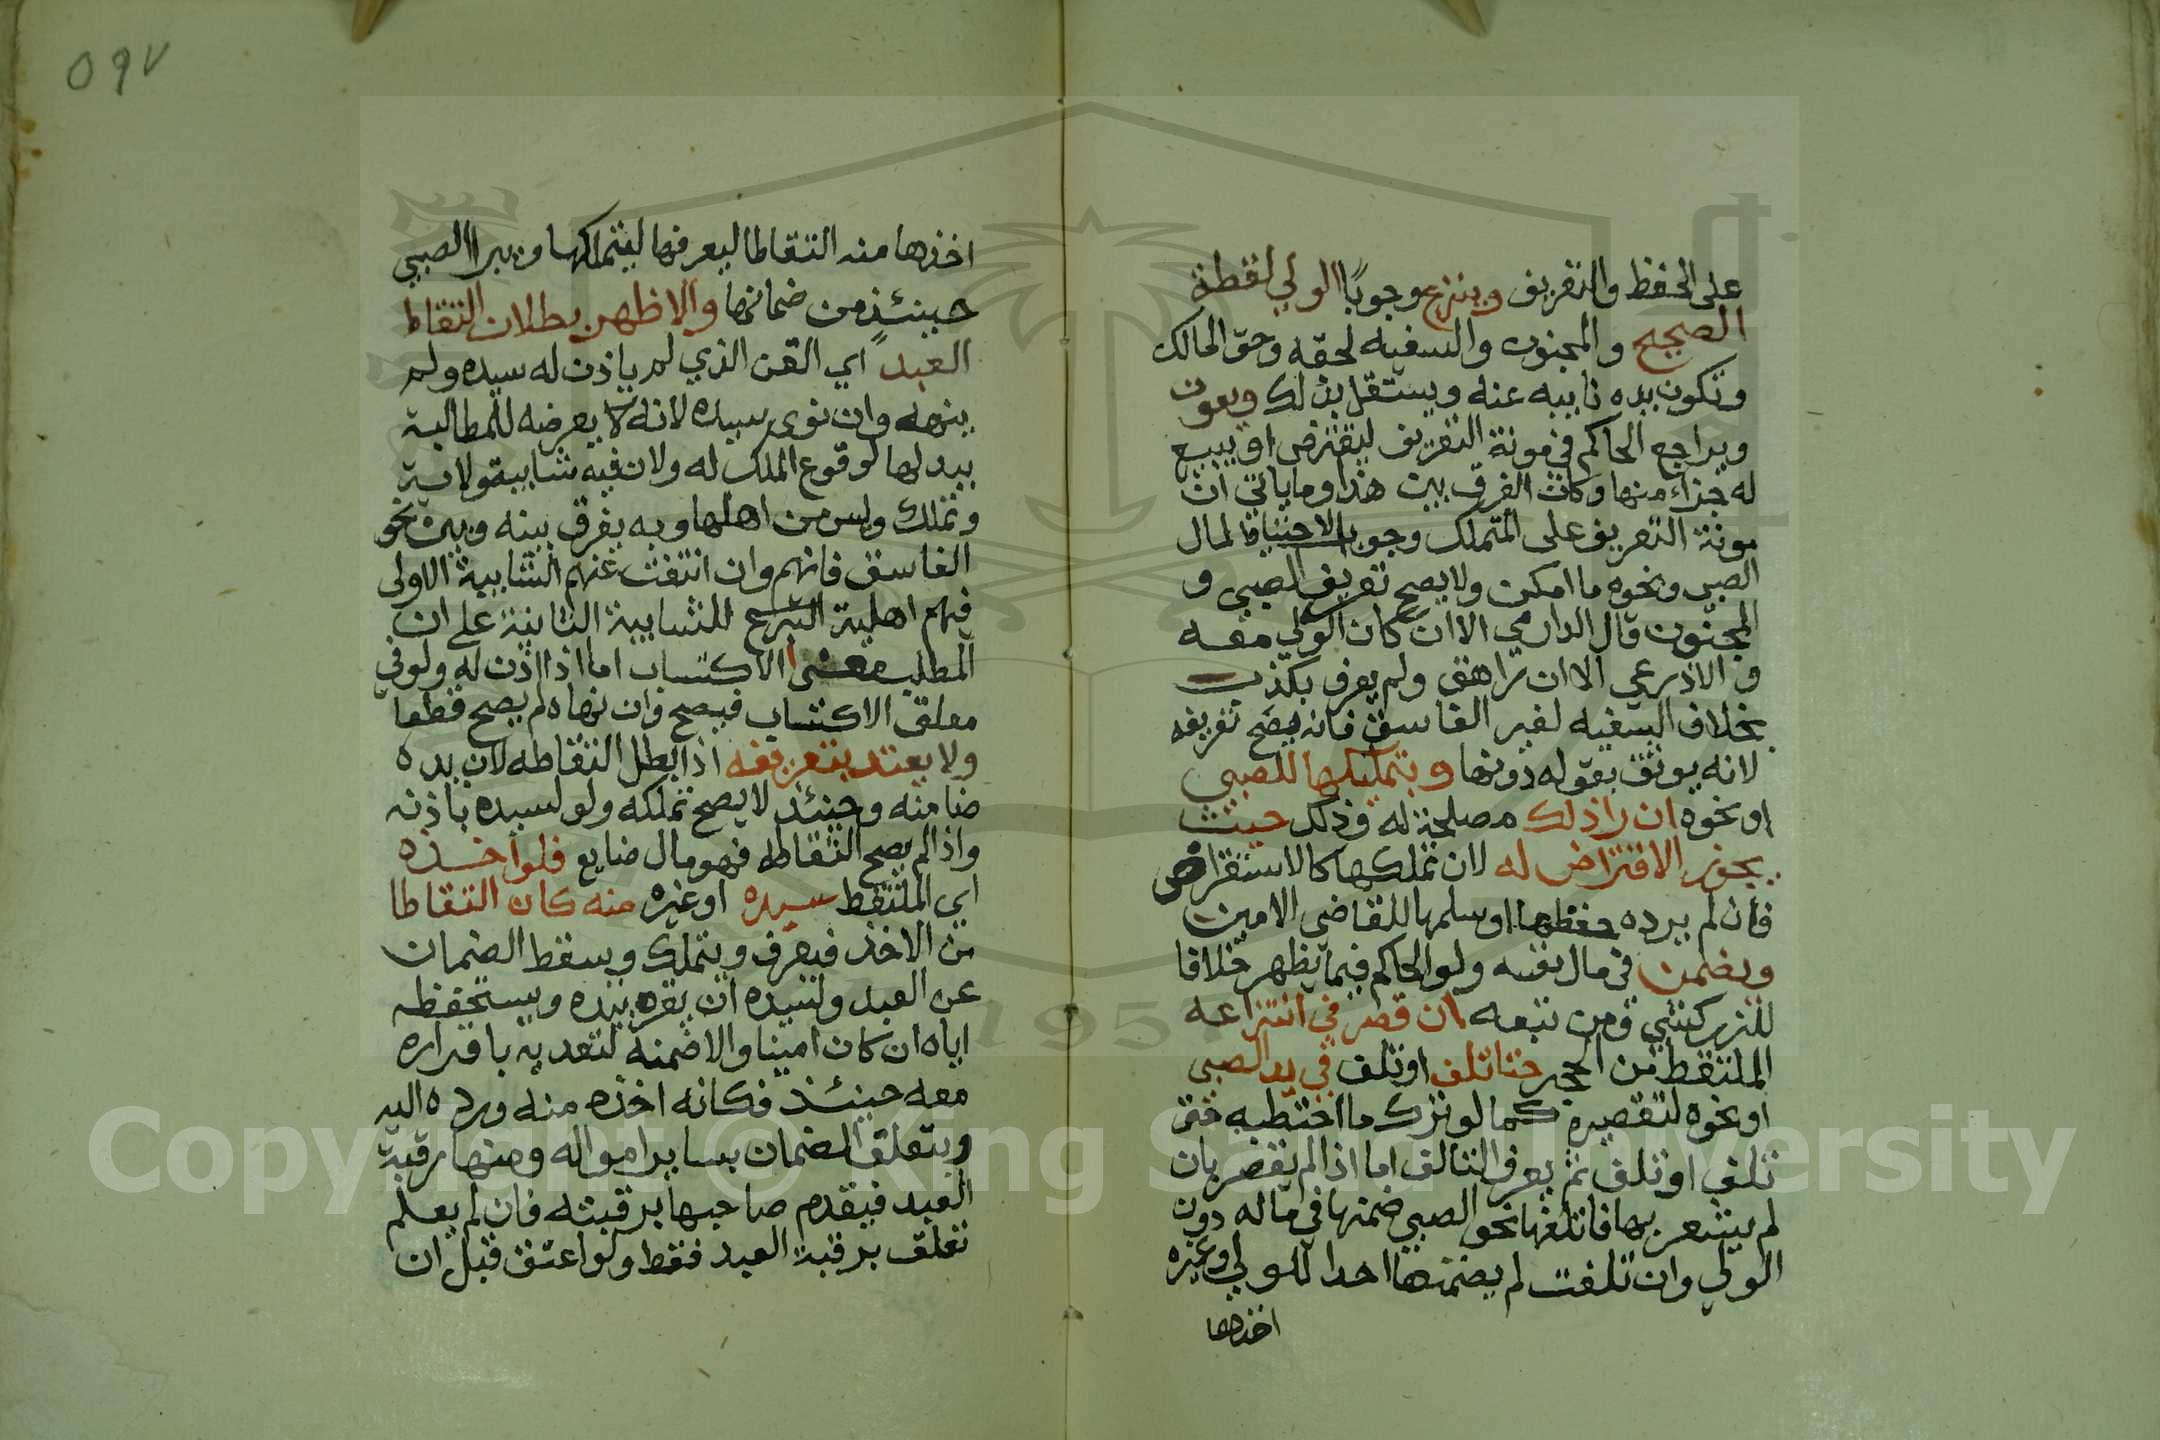 على الحفظ والتعريف وينزع وجوبًا الولي لقطة
الصحيح والمجنون والسفيه لحقه وحق المالك
وتكون يده نايبه عنه ويستقل بذلك
ويراجع الحاكم في مونة التعريف ليقترض او يبيع
له جزاء منها وكان الفرق بين هذا وما ياتي ان
مونة التعريف على المتملك وجوب الاحتياط لمال
الصبي ونحوه ما امكن ولا يصح تعريف الصبي و
المجنون قال الدارمي الا ان كان الولي معه
و الاذرعي الا ان يراهق ولم يعرف بكذب
بخلاف السفيه لغير الفاسق فانه يصح تعريفه
لانه يوثق بقوله دونها ويتملكها للصبي
او نحوه ان راذلك مصلحة له وذلك حيث
يجوز الاقتراض له لان تملكها كالاستقراض
فان لم يره حفظها او سلمها للقاضي الامين
ويضمن في مال نفسه ولو الحاكم فيما يظهر خلافا
للزركشي ومن تبعه ان قصر في انتزاعه
الملتقط من المحجر حتا تلف او تلف في يد الصبي
او نحوه لتقصيره كما لو ترك ما احتطبه حتى
تلف او تلف ثم يعرف التالف اما اذا لم يقصر بان
لم يشعر بها فاتلفها نحو الصبي ضمنها في ماله دون
الولي وان تلفت لم يضمنها احدا للولي وغيره
اخذها
٥٩٧
اخذها منه التقاطا ليعرفها ليتملكها ويبرا الصبي
حينئذٍ من ضمانها والاظهر بطلان التقاط
العبد اي القن الذي لم ياذن له سيده ولم
ينهه وان نوى سيده لانه يعرضه للمطالبة
ببدلها لوقوع الملك له ولان فيه شايبة ولاية
وتملك وليس من اهلها وبه يفرق بينه وبين نحو
الفاسق فانهم وان انتفت عنهم الشايبة الاولى
فيهم اهلية التبرع للشايبة الثانية على ان
المطلب معنى الاكتساب اما اذا اذن له ولو في
مطلق الاكتساب فيصح وان نهاه لم يصح قطعا
ولا يعتد بتعريفه اذا بطل التقاطه لان يده
ضامنه وحينئذ لا يصح تملكه ولو لسيده باذنه
واذا لم يصح التقاطه فهو مال ضايع فلو اخذه
اي الملتقط سيده او غيره منه كان التقاطا
من الاخذ فيعرف ويتملك ويسقط الضمان
عن العبد ولسيده ان يقره بيده ويستحفظه
اياه ان كان امينا والا ضمنه لتعديه باقراره
معه حينئذ فكانه اخذه منه ورده اليه
ويتعلق الضمان بساير امواله ومنها رقبة
العبد فيقدم صاحبها برقبته فان لم يعلم
تعلق برقبة العبد فقط ولو اعتق قبل ان
Copyright © King Saud University
1957